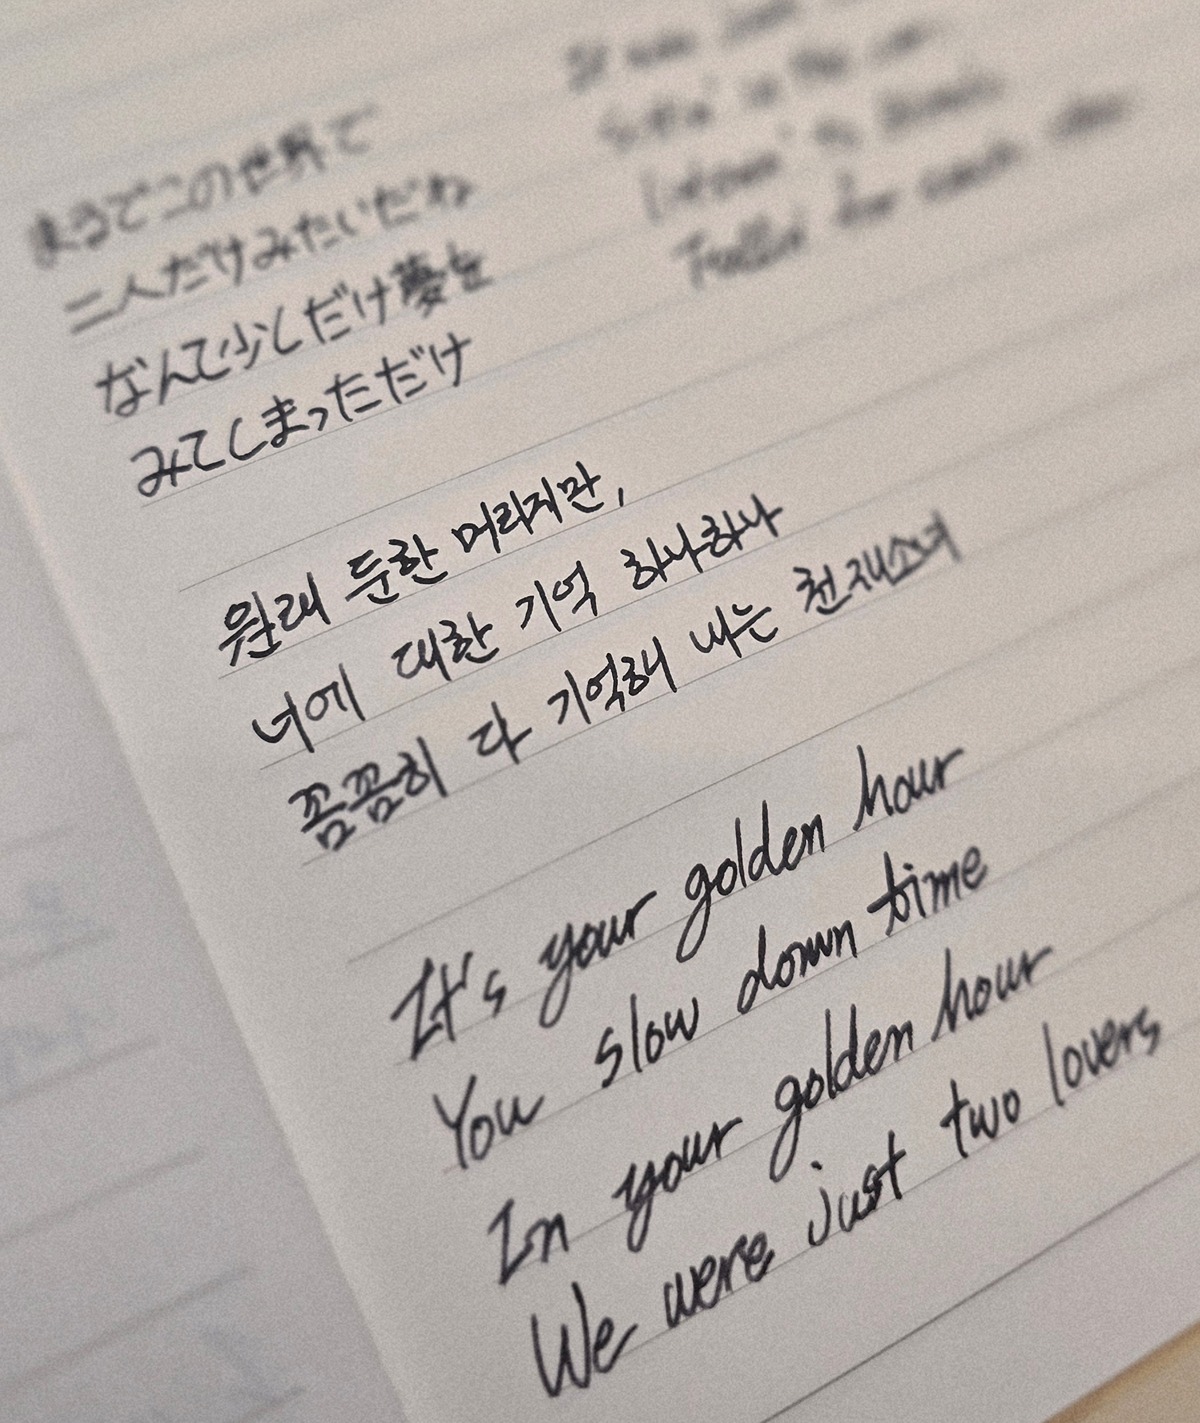 まるでこの世界で
二人だけみたいだね
なんて少しだけ夢を
みてしまっただけ
It was just
Sittin' in the car
listenin' to Blonde
Fallin' for each other
원래 둔한 머리지만,
너에 대한 기억 하나하나
꼼꼼히 다 기억해 내는 천재소녀
It's your golden hour
You slow down time
In your golden hour
We were just two lovers